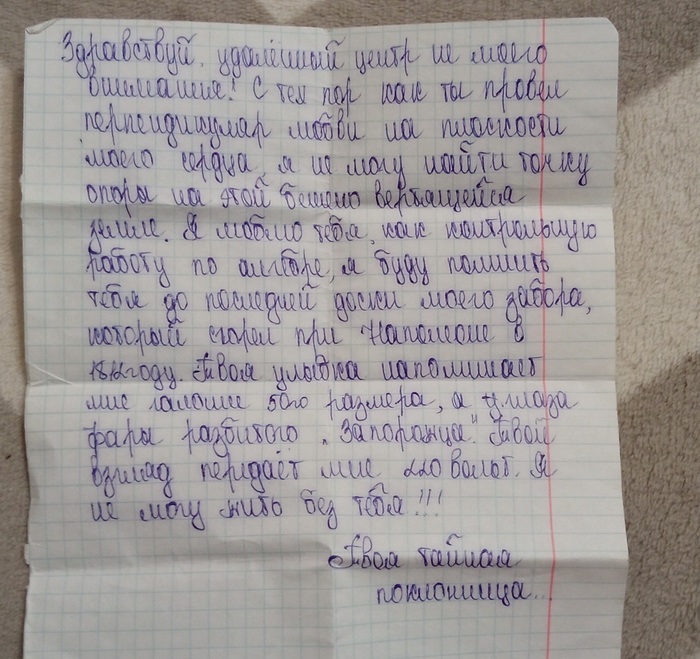 Здравствуй, удалённый центр не моего
внимания! С тех пор как ты провел
перпендикуляр любви на плоскости
моего сердца, я не могу найти точку
опоры на этой бешено вертящейся
земле. Я люблю тебя, как контрольную
работу по алгебре, я буду помнить
тебя до последней доски моего забора,
который сгорел при Наполеоне в
1812 году. Твоя улыбка напоминает
мне галоши 50го размера, а глаза
фары разбитого "Запорожца". Твой
взгляд передаёт мне 220 вольт. Я
не могу жить без тебя!!!
Твоя тайная
поклонница...